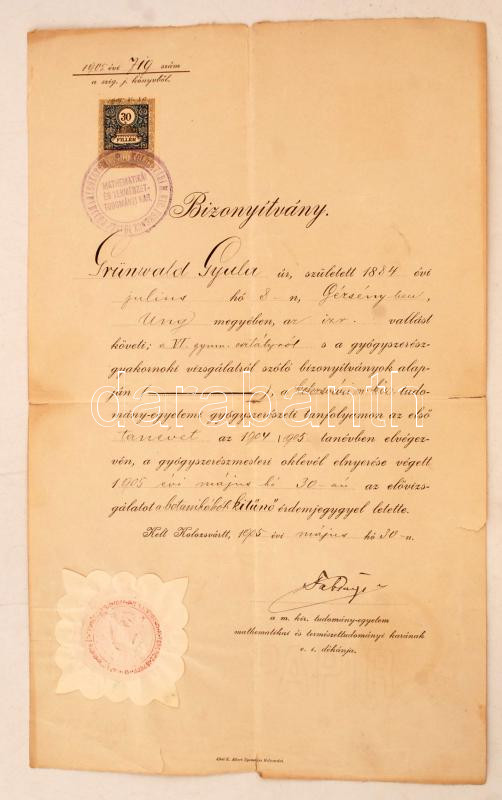 1905 évi 719 szám
a szig. j. könyvből.
30
FILLÉR
MATHEMATIKAI
ÉS TERMÉSZET-
TUDOMÁNYI KAR.
Bizonyítvány.
Grünwald Gyula úr, született 1884 évi
julius hó 8-n, Gézsényben,
Ung megyében, az izr. vallást
követi; a VI gymn. osztályról s a gyógyszerész-
gyakornoki vizsgálatról szóló bizonyítványok alap-
ján a kolozsvári m. kir. tudo-
mány-egyetemi gyógyszerészeti tanfolyamon az első
tanévet az 1904/1905 tanévben elvégez-
vén, a gyógyszerészmesteri oklevél elnyerése végett
1905 évi május hó 30-án az elővizs-
gálatot a botanikából kitűnő érdemjegygyel letette.
Kelt Kolozsvártt, 1905 évi május hó 30-n.
a m. kir. tudomány-egyetem
mathematikai és természettudományi karának
e. i. dékánja.
darabanth